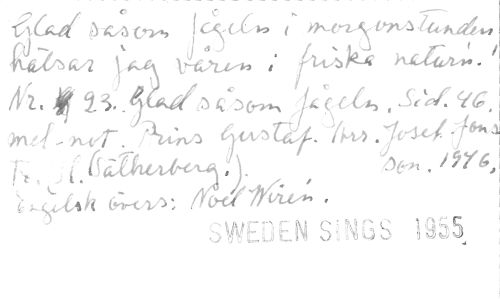 Glad såsom fågeln i morgonstunden
hälsar jag våren i friska naturn!
Nr. 23. Glad såsom fågeln. Sid. 46.
mel-not. Prins Gustaf. Arr. Josef Jons
T. H. Sätherberg.). son. 1946.
Engelsk övers: Noel Wirén.
SWEDEN SINGS 1955